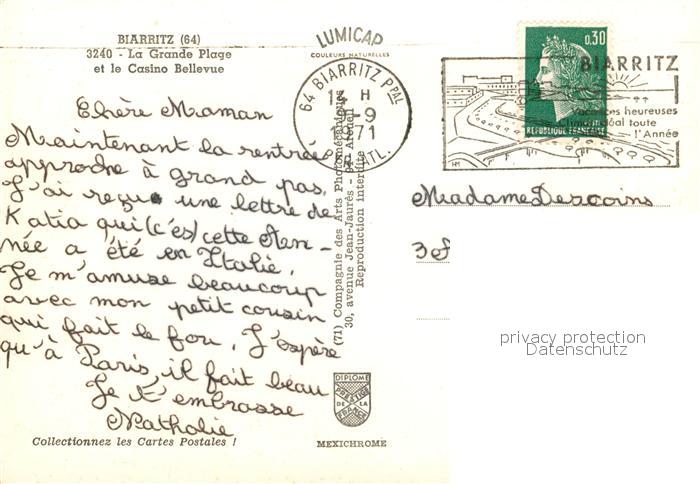 BIARRITZ (64)
3240 - La Grande Plage
et le Casino Bellevue
LUMICAP
COULEURS NATURELLES
Chère Maman
Maintenant la rentrée
approche à grand pas.
J'ai reçu une lettre de
Katia qui (c'es) cette Aen-
née a été en Italie.
Je m'amuse beaucoup
avec mon petit cousin
qui fait le fou. J'espère
qu'à Paris, il fait beau
Je t'embrasse
Nathalie
Collectionnez les Cartes Postales !
(71) Compagnie des Arts Photomécaniques
30, avenue Jean-Jaurès -
Reproduction interdite
DIPLOME
PRESTIGE
DE LA
FRANCE
MEXICHROME
64 BIARRITZ PPAL
H
9
1971
ATL.
0.30
REPUBLIQUE FRANCAISE
BIARRITZ
Vacances heureuses
Climat idéal toute
l'Année
Madame Descoins
3
privacy protection
Datenschutz